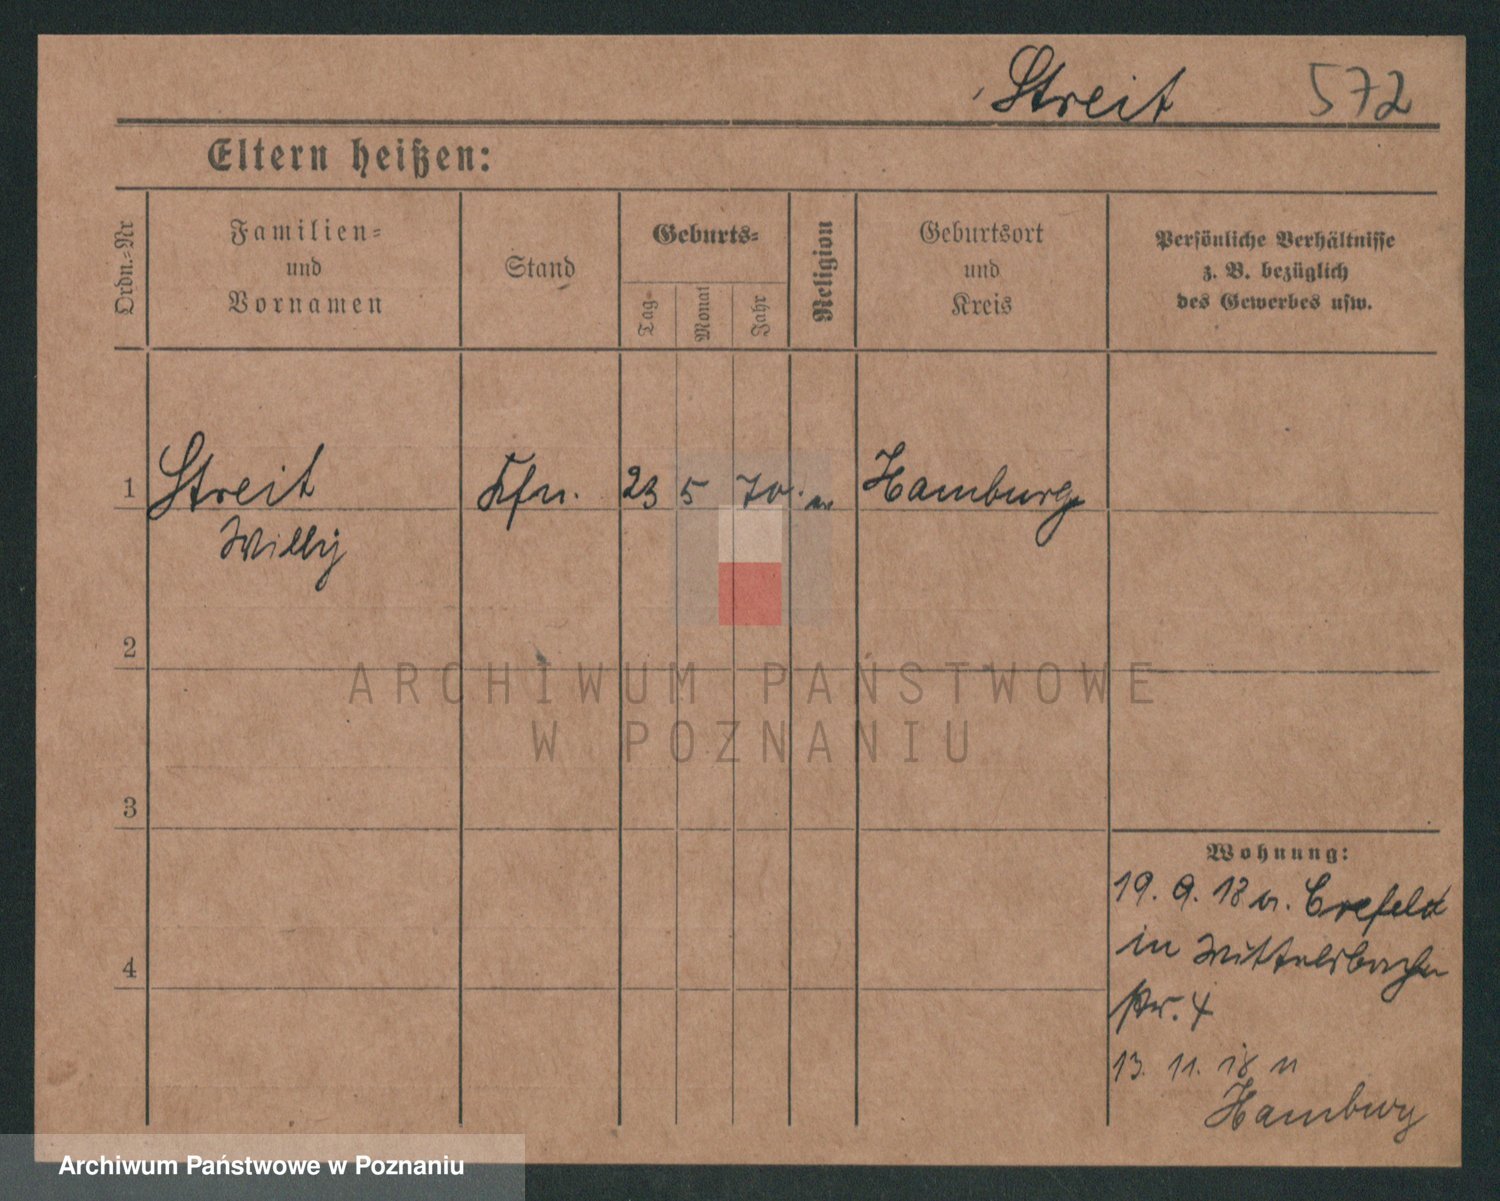 Streit 572
Eltern heißen:
Ordn.=Nr
Familien=
und
Vornamen
Stand
Geburts=
Tag=
Monat
Jahr
Religion
Geburtsort
und
Kreis
Persönliche Verhältnisse
z. B. bezüglich
des Gewerbes usw.
1 Streit Kfm. 23 5 70. ev Hamburg
Willy
2
3
4
Wohnung:
19. 9. 18 v. Crefeld
in Wittelsbacher
str. 4
13. 11. 18 n
Hamburg
ARCHIWUM PAŃSTWOWE
W POZNANIU
Archiwum Państwowe w Poznaniu